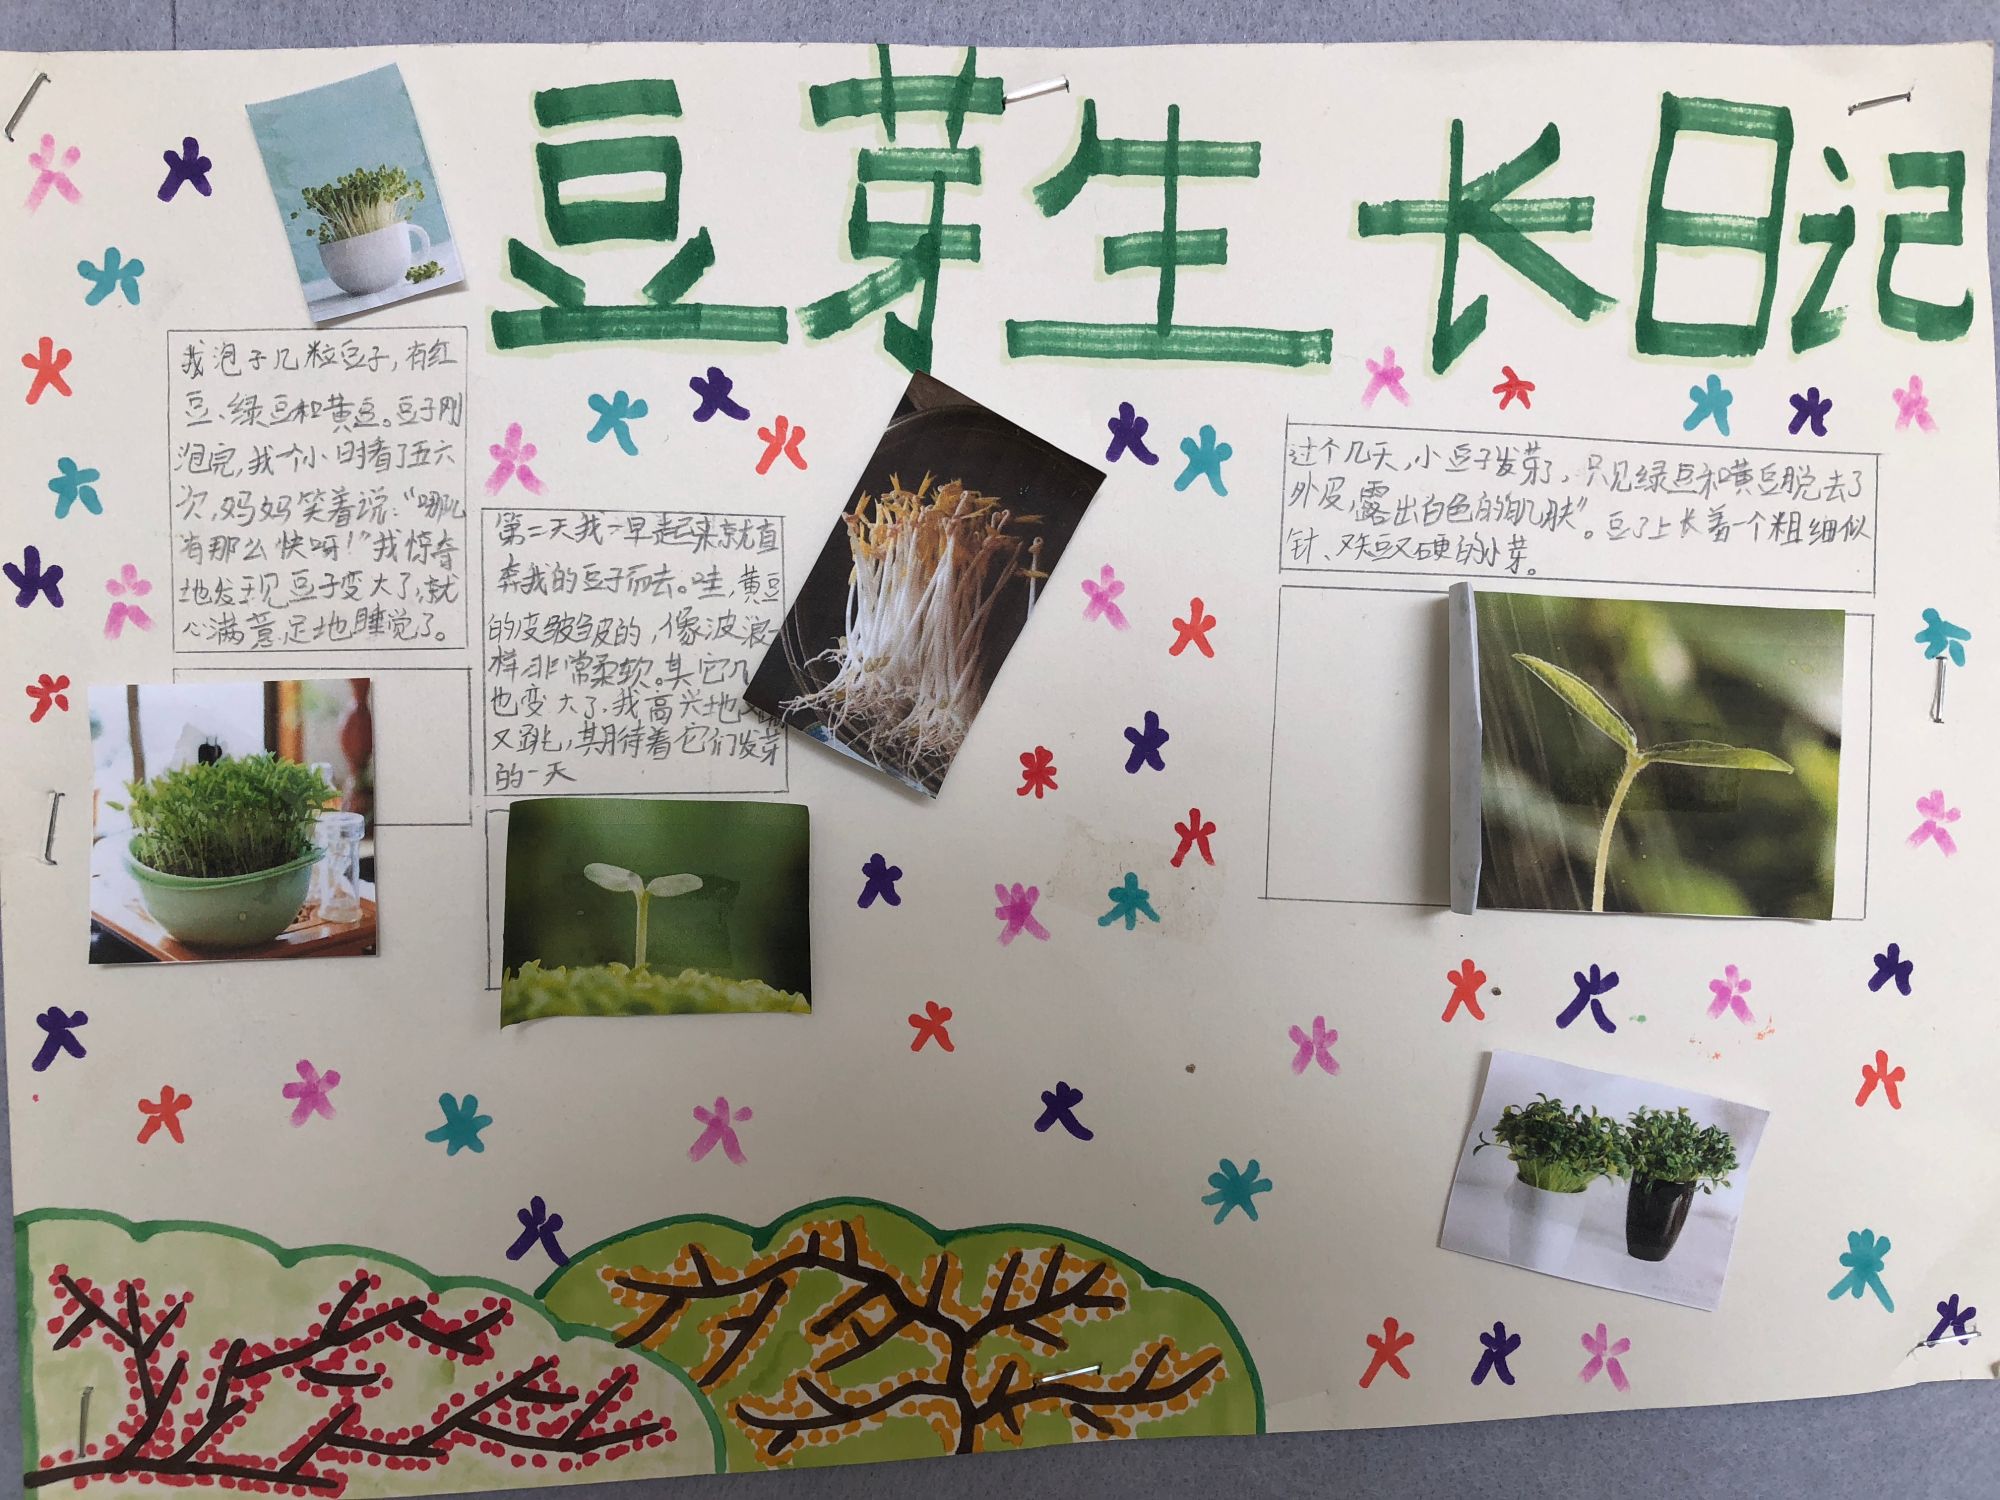 豆芽生长日记
我泡了几粒豆子，有红
豆、绿豆和黄豆。豆子刚
泡完，我一个小时看了五六
次，妈妈笑着说：“哪儿
有那么快呀！”我惊奇
地发现豆子变大了，就
心满意足地睡觉了。
第二天我一早起来就直
奔我的豆子而去。哇，黄豆
的皮皱皱的，像波浪一
样非常柔软。其它
也变大了，我高兴地
又跳，期待着它们发芽
的一天
过个几天，小豆子发芽了，只见绿豆和黄豆脱去了
外皮，露出白色的“肌肤”。豆子上长着一个粗细似
针、又短又硬的小芽。